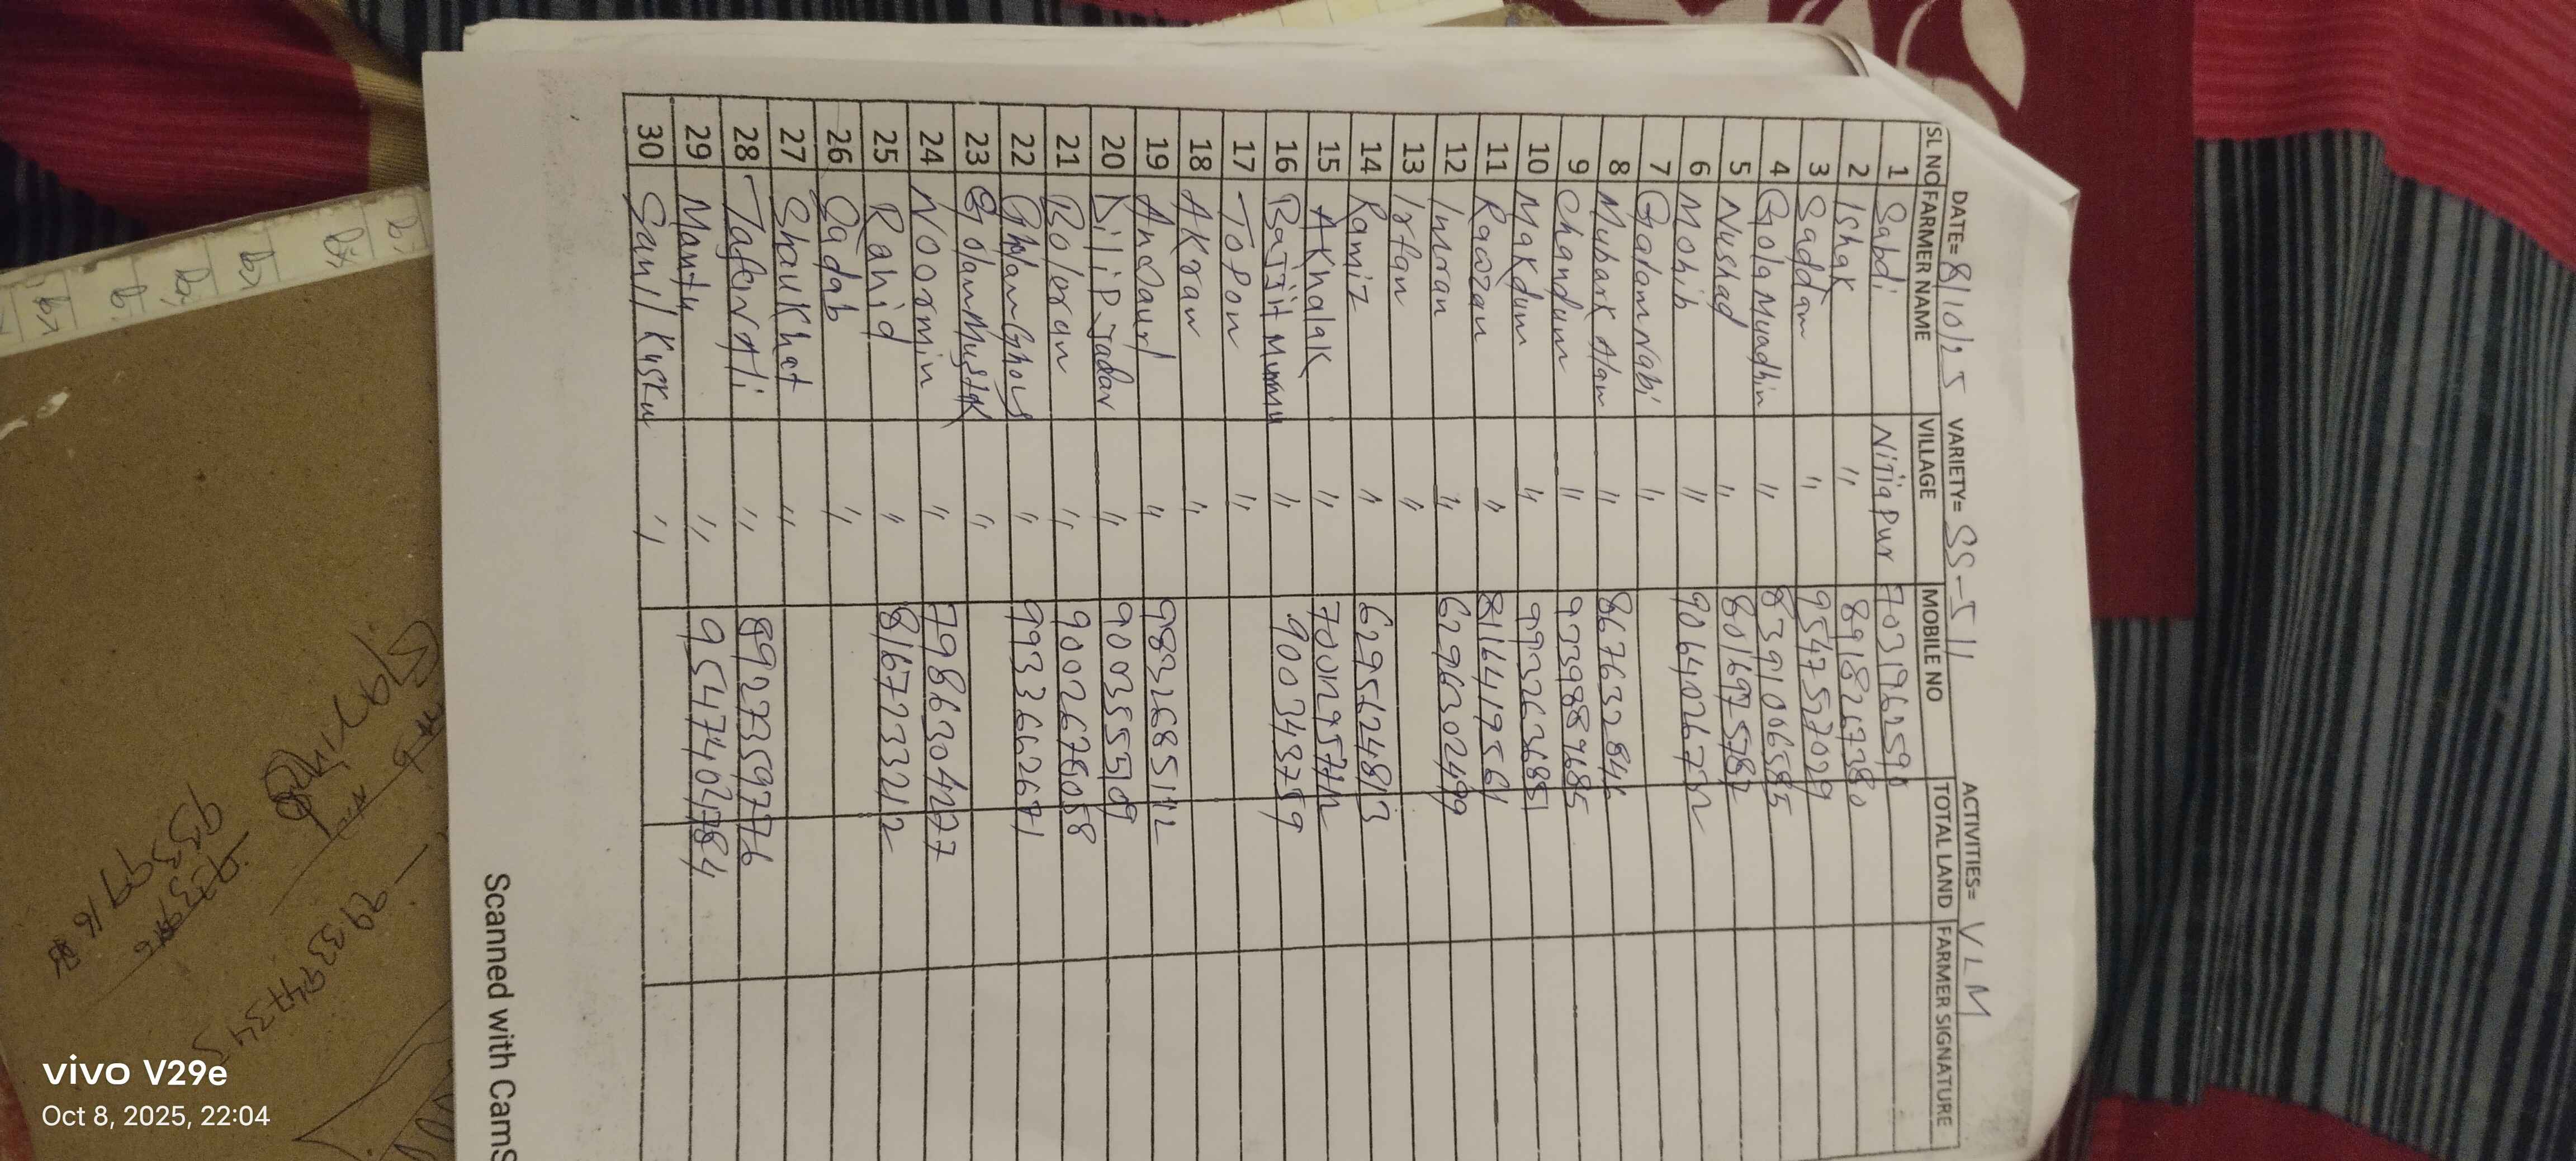 DATE= 8/10/25 VARIETY= SS-511 ACTIVITIES= VLM
SL NO FARMER NAME VILLAGE MOBILE NO TOTAL LAND FARMER SIGNATURE
1 Sabdi Nijiapur 7031962590
2 Ishak " 8918267380
3 Saddam " 9547552029
4 Gola Muodhin " 8391006585
5 Nushad " 8016975782
6 Mohib " 9064026732
7 Galam Nabi "
8 Mubark Alam " 8676328
9 Chandum " 9339889685
10 Makdum " 9932636851
11 Raozan " 8164419561
12 Imran " 6296302499
13 Irfan "
14 Ramiz " 6295624813
15 AKhalak "
16 Bajjit Murmu " 900343759
17 ToPon "
18 AKram "
19 " 9832685112
20 DiliP Jadav " 9003555
21 Boleram " 9002675058
22 Gholam Ghous " 9933662671
23 Golam Mustak "
24 Noormin " 7986304277
25 Rahid " 8167233212
26 Sadab "
27 ShauKhat "
28 " 8927359776
29 Mantu " 9547402784
30 Sanil Kusku "
Scanned with CamS
vivo V29e
Oct 8, 2025, 22:04